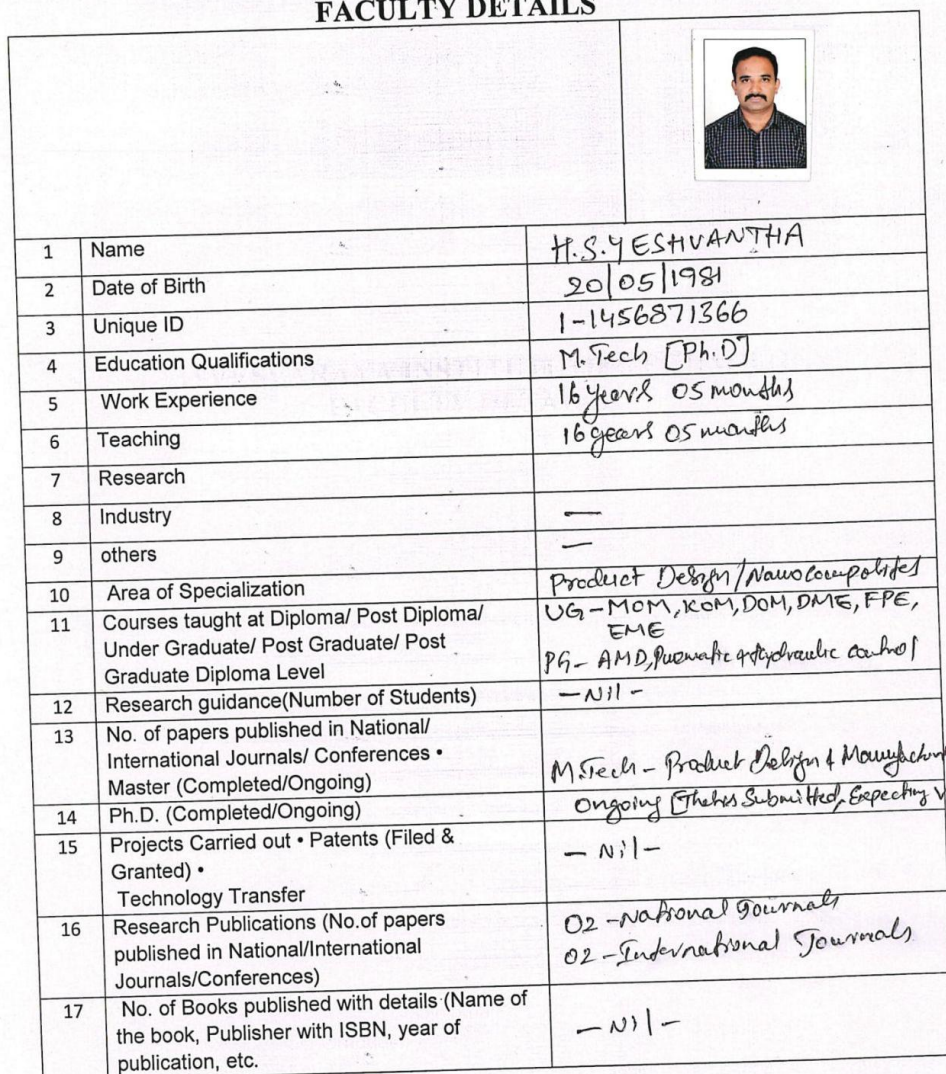 FACULTY DETAILS
1 Name H.S.YESHVANTHA
2 Date of Birth 20/05/1981
3 Unique ID 1-1456871366
4 Education Qualifications M.Tech [Ph.D]
5 Work Experience 16 years 05 months
6 Teaching 16 years 05 months
7 Research
8 Industry —
9 others —
10 Area of Specialization Product Design/Nanocomposites
11 Courses taught at Diploma/ Post Diploma/ UG-MOM, KOM, DOM, DME, FPE,
Under Graduate/ Post Graduate/ Post EME
Graduate Diploma Level PG- AMD, Pneumatic & Hydraulic control
12 Research guidance(Number of Students) -Nil-
13 No. of papers published in National/
International Journals/ Conferences •
Master (Completed/Ongoing) M.Tech - Product Design &
14 Ph.D. (Completed/Ongoing) Ongoing [Thesis Submitted, Expecting
15 Projects Carried out • Patents (Filed & - Nil-
Granted) •
Technology Transfer
16 Research Publications (No.of papers 02 -National Journals
published in National/International 02 -International Journals
Journals/Conferences)
17 No. of Books published with details (Name of
the book, Publisher with ISBN, year of - Nil -
publication, etc.